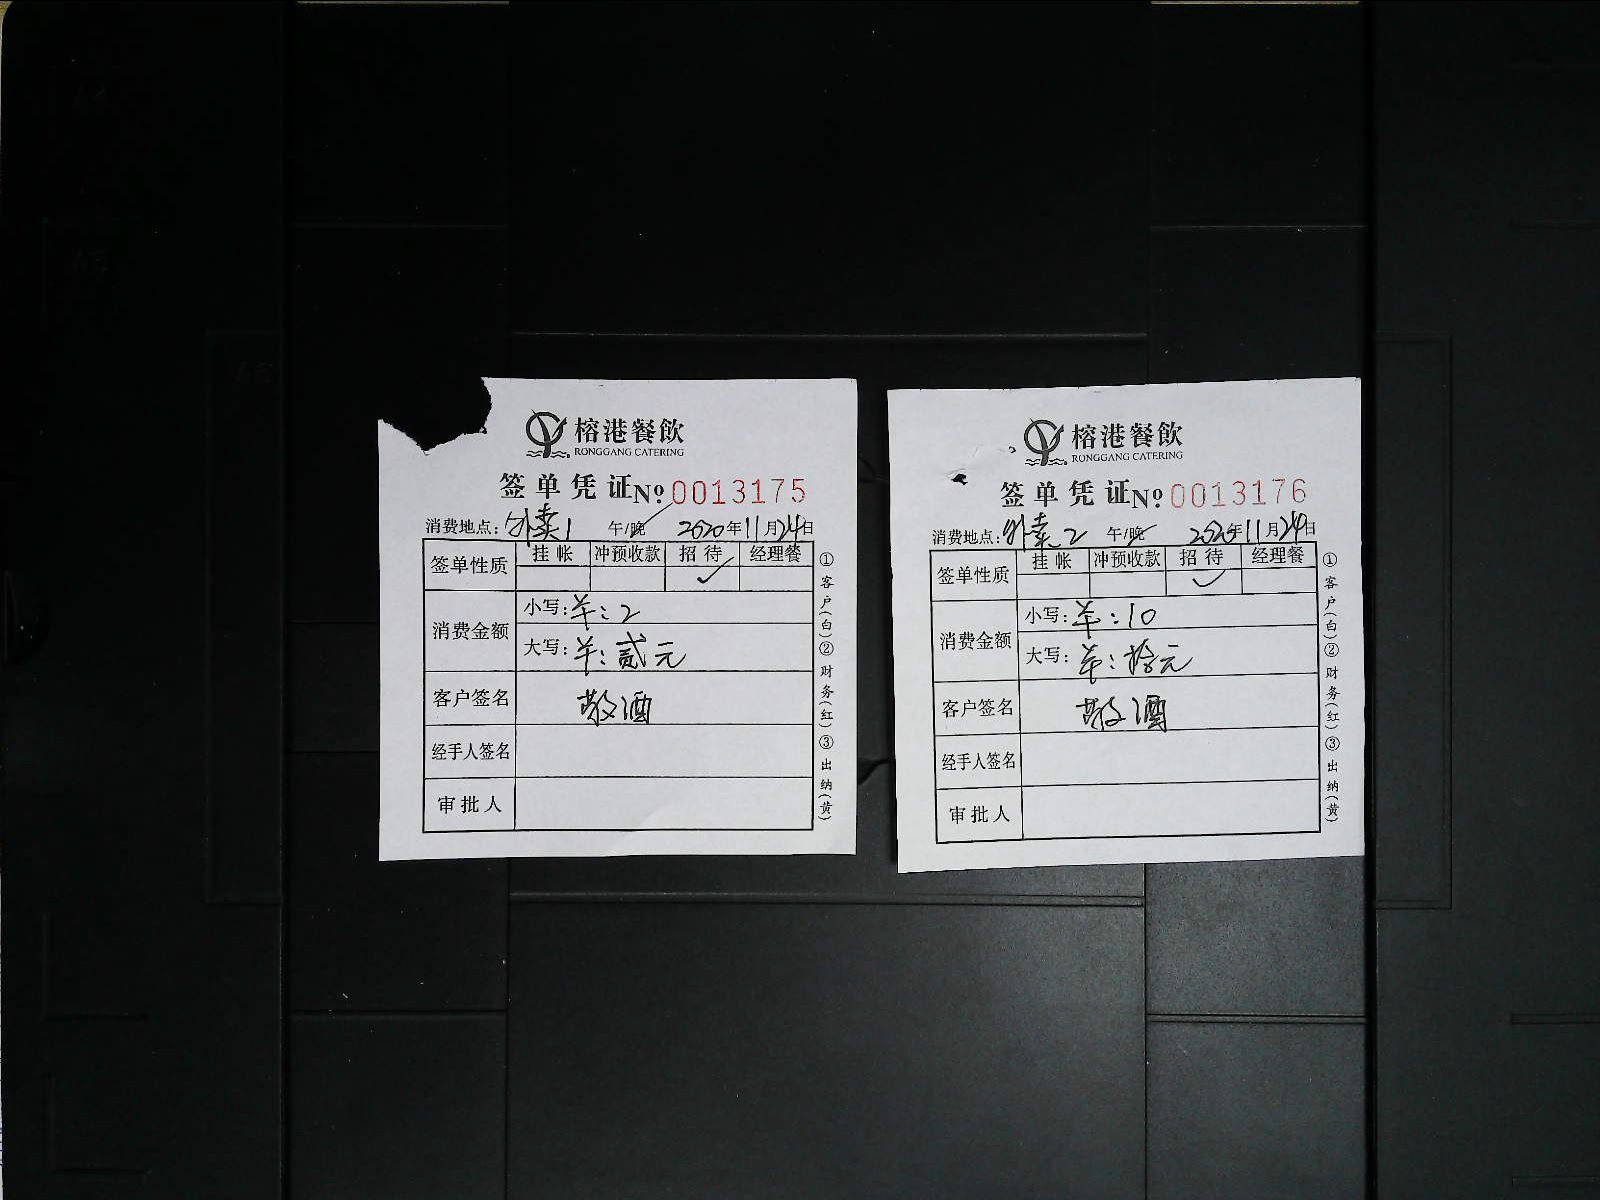 榕港餐飲
RONGGANG CATERING
签单凭证№ 0013175
消费地点：外卖1 午/晚 2020年11月24日
签单性质 挂帐 冲预收款 招待 经理餐
✓
消费金额 小写：羊：2
大写：羊：贰元
客户签名 敬酒
经手人签名
审批人
①客户(白)②财务(红)③出纳(黄)
榕港餐飲
RONGGANG CATERING
签单凭证№ 0013176
消费地点：外卖2 午/晚 2020年11月24日
签单性质 挂帐 冲预收款 招待 经理餐
✓
消费金额 小写：羊：10
大写：羊：拾元
客户签名 敬酒
经手人签名
审批人
①客户(白)②财务(红)③出纳(黄)